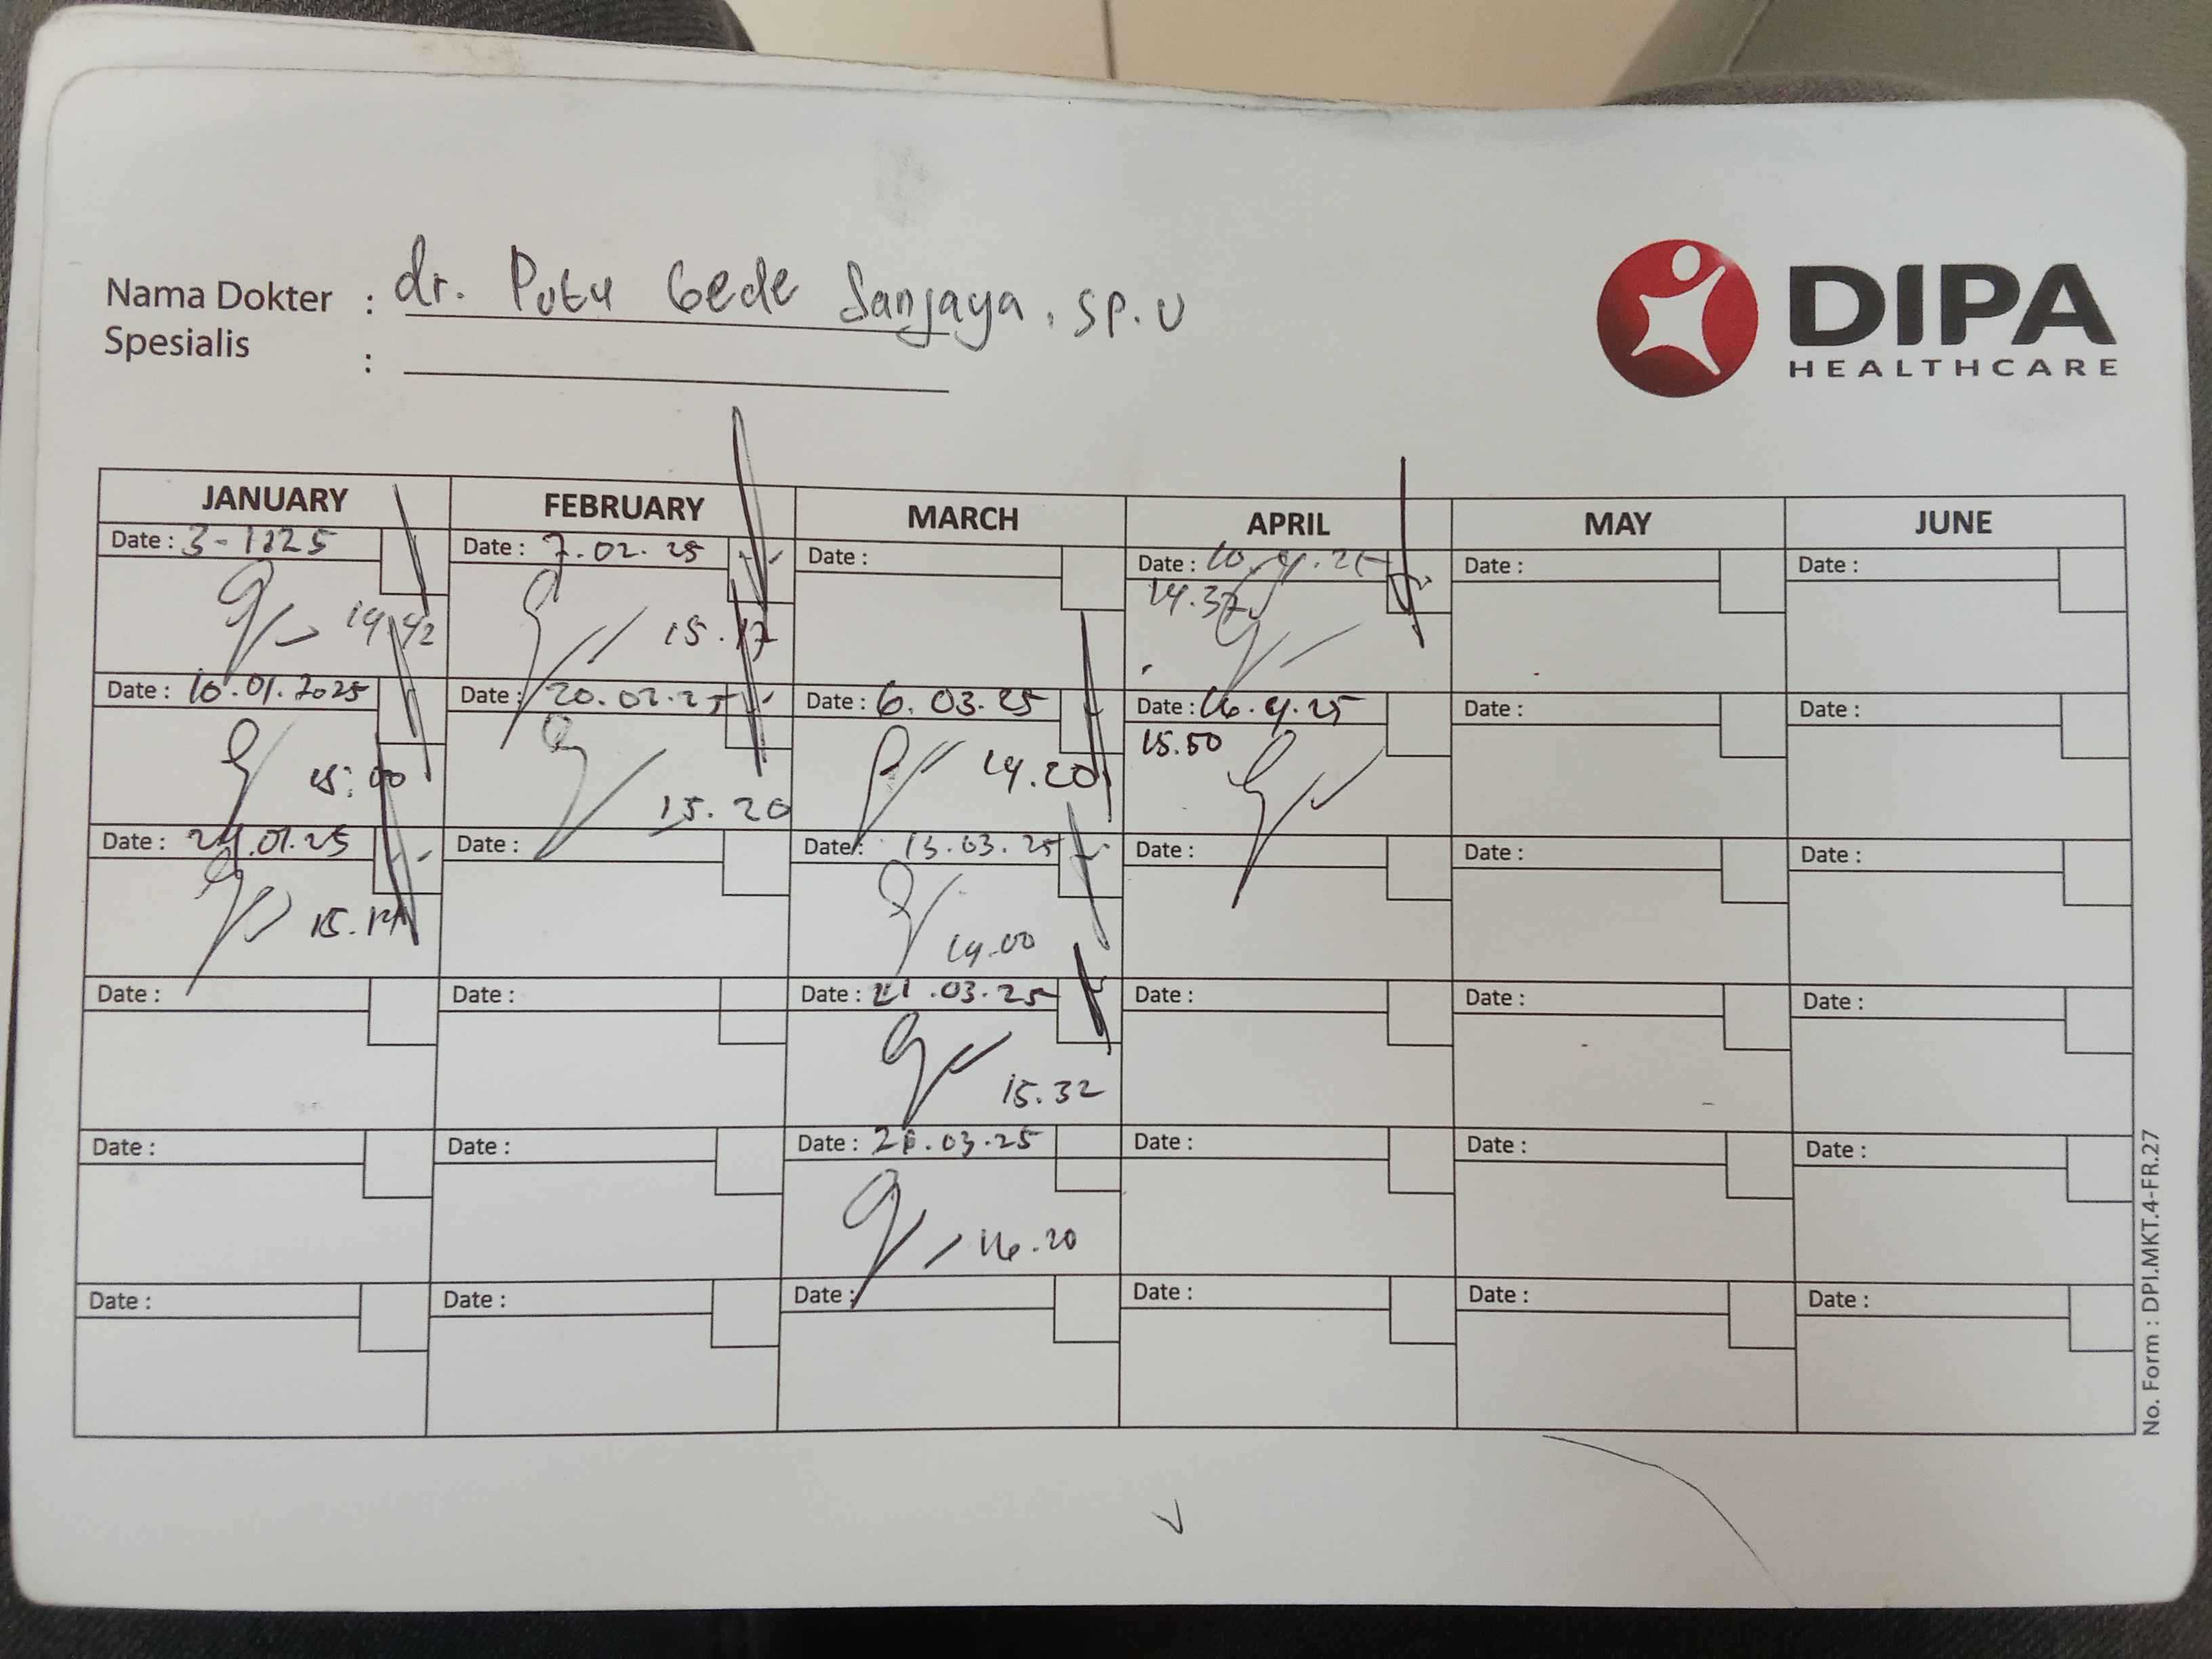 DIPA
HEALTHCARE
Nama Dokter : dr. Putu Gede Sanjaya, Sp.U
Spesialis :
JANUARY FEBRUARY MARCH APRIL MAY JUNE
Date : 3-1125 Date : 7.02.25 Date : Date : 10.4.25 Date : Date :
14.42 15.17 14.37
Date : 10.01.2025 Date : 20.02.25 Date : 6.03.25 Date : 16.4.25 Date : Date :
15:00 15.20 14.20 15.50
Date : 24.01.25 Date : Date : 13.03.25 Date : Date : Date :
15. 14.00
Date : Date : Date : 21.03.25 Date : Date : Date :
15.32
Date : Date : Date : .03.25 Date : Date : Date :
16.20
Date : Date : Date : Date : Date : Date :
No. Form : DPI.MKT.4-FR.27